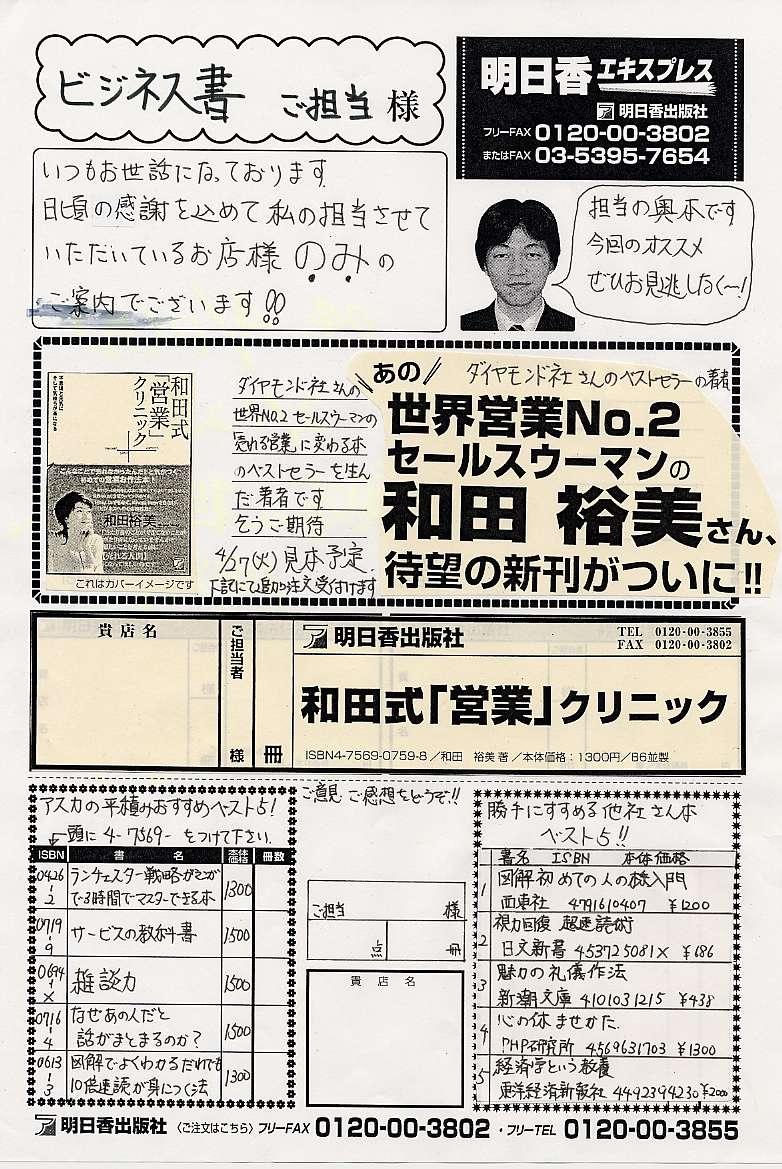 ビジネス書 ご担当 様
明日香エキスプレス
明日香出版社
フリーFAX 0120-00-3802
またはFAX 03-5395-7654
いつもお世話になっております
日頃の感謝を込めて私の担当させて
いただいているお店様のみの
ご案内でございます!!
担当の奥本です
今回のオススメ
ぜひお見逃しなく〜!
和田式
「営業」
クリニック
和田裕美
これはカバーイメージです
ダイヤモンド社さんの
世界NO.2 セールスウーマンの
「売れる営業」に変わる本
のベストセラーを生ん
だ著者です
ぞうご期待
4/27(火)見本予定.
下記にて追加注文受付けます
あの
ダイヤモンド社さんのベストセラーの著者
世界営業No.2
セールスウーマンの
和田 裕美さん、
待望の新刊がついに!!
貴店名
ご担当者
様
冊
明日香出版社
TEL 0120-00-3855
FAX 0120-00-3802
和田式「営業」クリニック
ISBN4-7569-0759-8/和田 裕美 著/本体価格:1300円/B6並製
アスカの平積みおすすめベスト5!
頭に 4-7569- をつけて下さい.
ISBN 書名 本体価格 冊数
0426-2 ランチェスター戦略がマンガで3時間でマスターできる本 1300
0719-9 サービスの教科書 1500
0694-X 雑談力 1500
0716-4 なぜあの人だと話がまとまるのか? 1500
0613-3 図解でよくわかるだれでも10倍速読が身につく法 1300
ご意見 ご感想をどうぞ!!
ご担当 様
点 冊
貴店名
勝手にすすめる他社さん本
ベスト5!!
書名 ISBN 本体価格
1 図解初めての人の株入門
西東社 4791610407 ¥1200
2 視力回復 超速読術
日文新書 453725081X ¥686
3 魅力の礼儀作法
新潮文庫 4101031215 ¥438
4 心の休ませかた
PHP研究所 4569631703 ¥1300
5 経済学という教養
東洋経済新報社 4492394230 ¥2000
明日香出版社 〈ご注文はこちら〉フリーFAX 0120-00-3802 ・フリーTEL 0120-00-3855